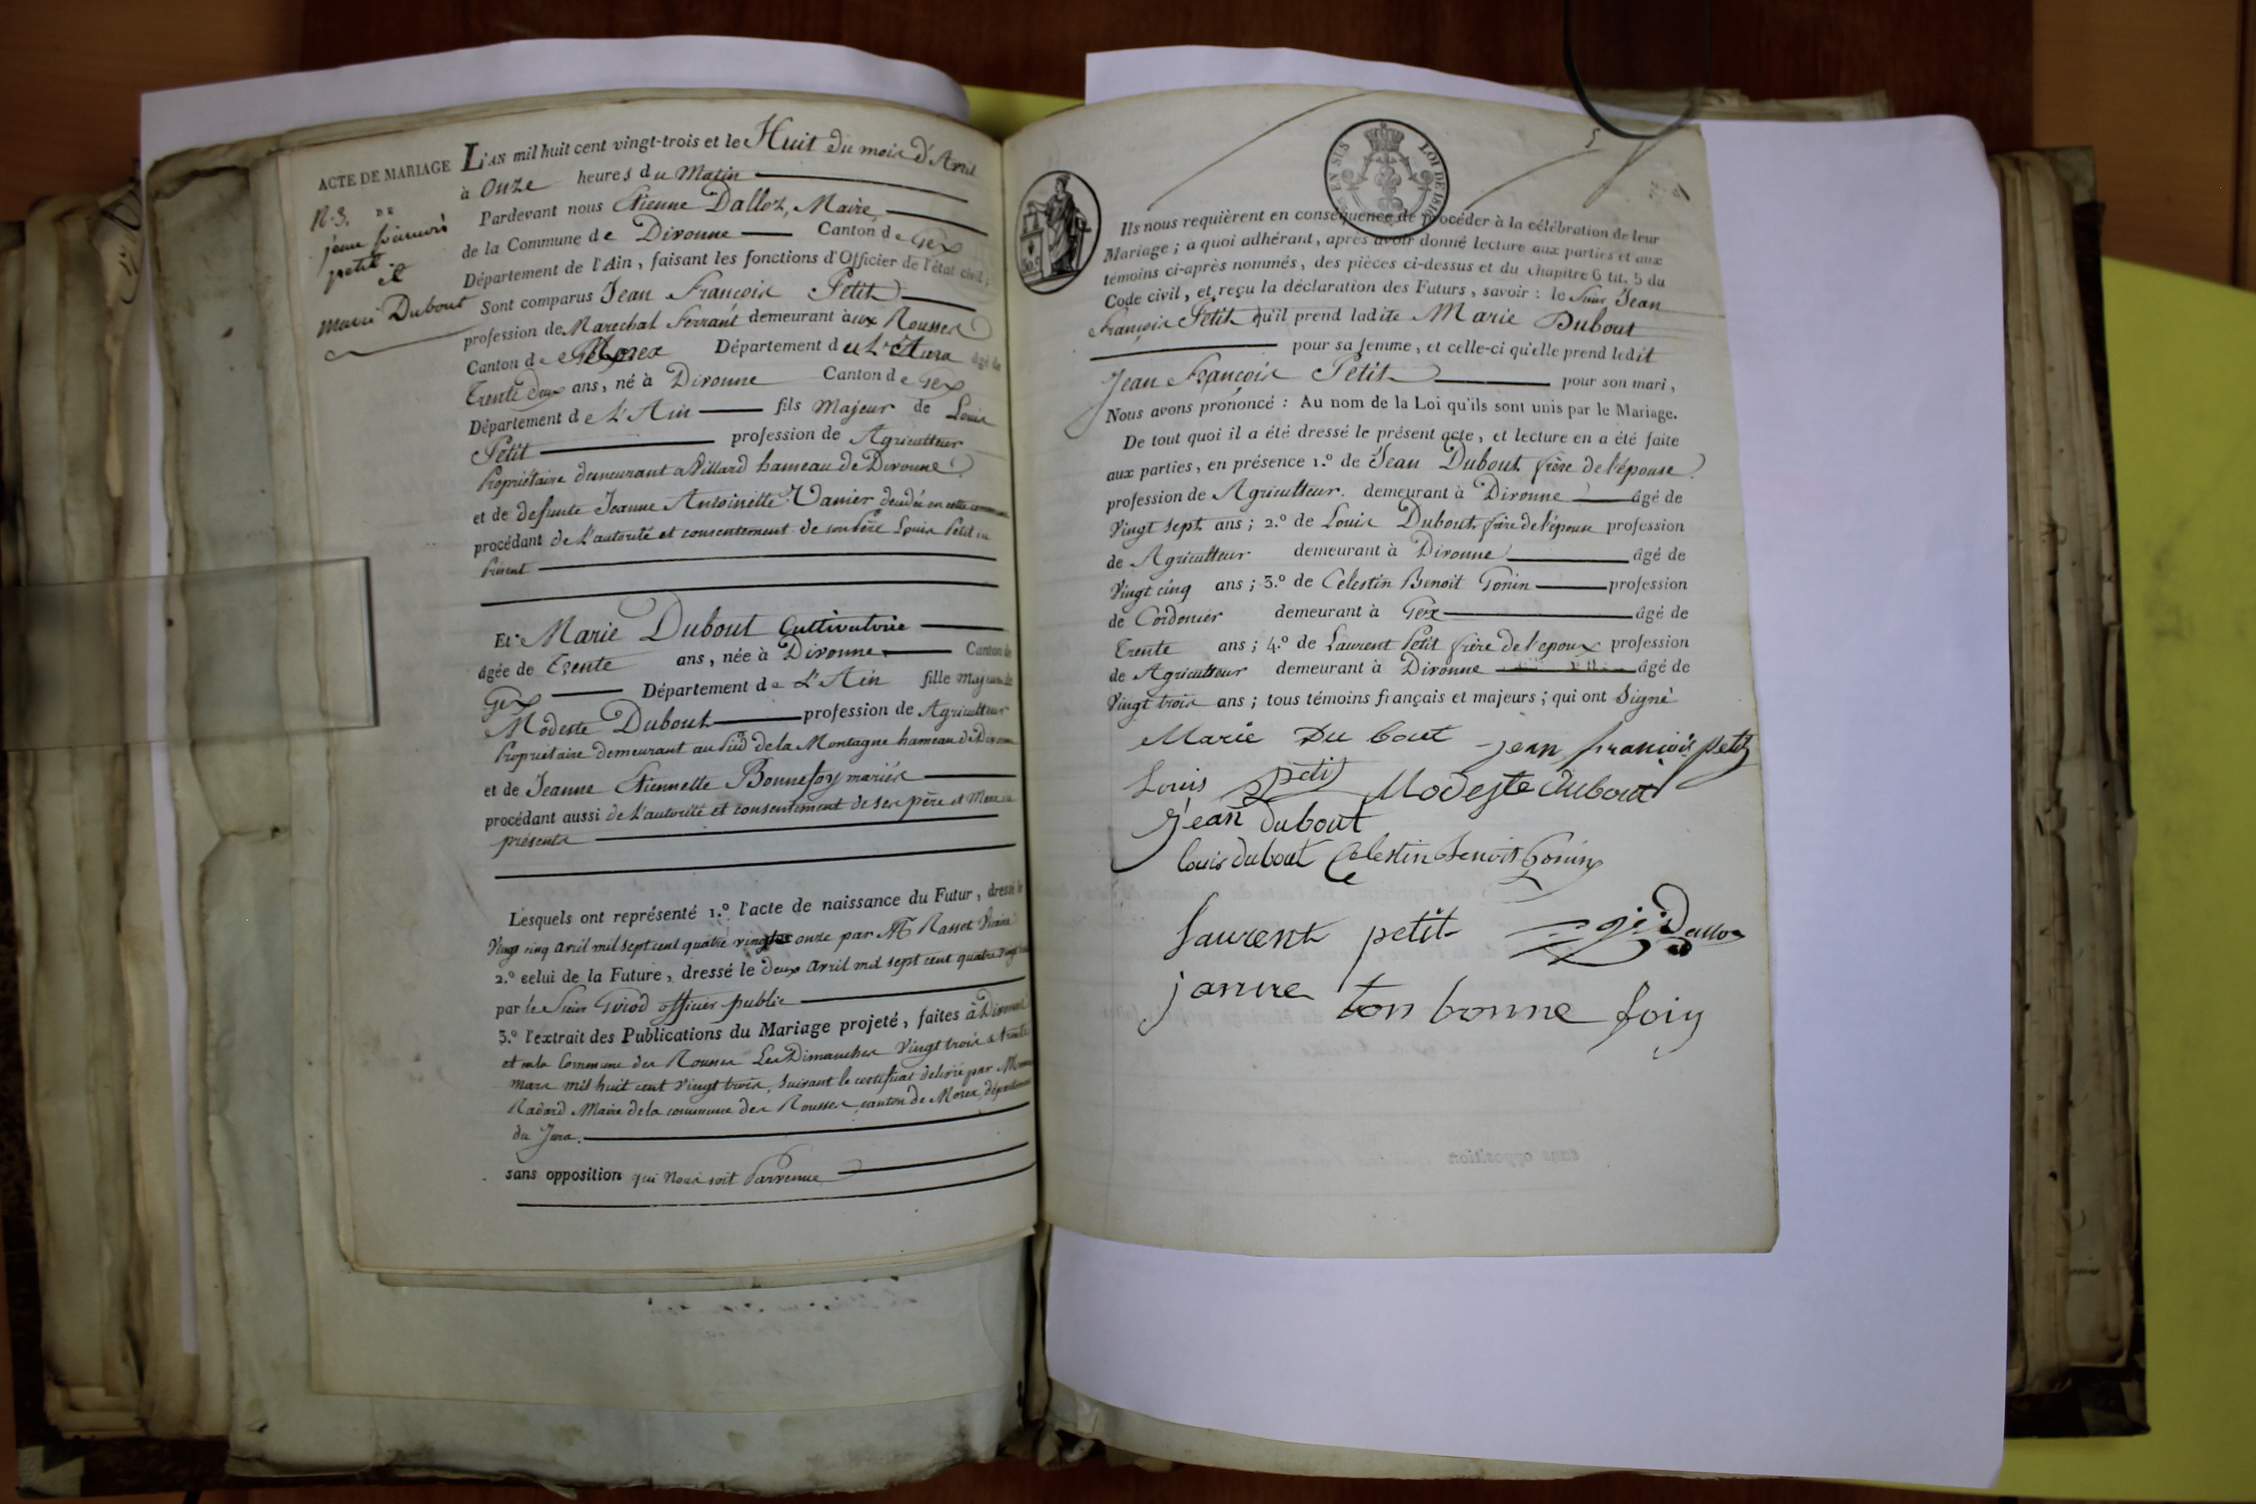 ACTE DE MARIAGE
N.º 3. DE
jean francois
petit
et
marie Dubout
L'AN mil huit cent vingt-trois et le Huit du mois d'Avril
à Onze heures du Matin
Pardevant nous Etienne Dalloz, Maire,
de la Commune de Divonne Canton de Gex
Département de l'Ain, faisant les fonctions d'Officier de l'état civil;
Sont comparus Jean François Petit
profession de Marechal ferrant demeurant aux Rousses
Canton de Morez Département du Jura âgé de
Trente deux ans, né à Divonne Canton de Gex
Département de L'Ain fils Majeur de Louis
Petit profession de Agriculteur
Propriétaire demeurant a Villard hameau de Divonne
et de defunte Jeanne Antoinette Vanier décédée en cette commune
procédant de L'autorité et consentement de son Père Louis Petit ici
Présent
Et Marie Dubout Cultivatrice
âgée de Trente ans, née à Divonne Canton de
Gex Département de L'Ain fille majeure de
Modeste Dubout profession de Agriculteur
Propriétaire demeurant au Pied de la Montagne hameau de Divonne
et de Jeanne Etiennette Bonnefoy mariés
procédant aussi de L'autorité et consentement de ses père et Mere ici
présents
Lesquels ont représenté 1.º l'acte de naissance du Futur, dressé le
Vingt cinq avril mil sept cent quatre vingt onze par Mr Rasset Vicaire
2.º celui de la Future, dressé le deux avril mil sept cent quatre vingt
par le Sieur Girod officier public
3.º l'extrait des Publications du Mariage projeté, faites à Divonne
et en la Commune des Rousses Les Dimanches Vingt trois & trente
mars mil huit cent vingt trois, suivant le certificat délivré par
Maire de la commune des Rousses, canton de Morez, département
du Jura.
sans opposition qui nous soit Parvenue
EN SUS
LOI DE 1816
5
Ils nous requièrent en conséquence de procéder à la célébration de leur
Mariage; a quoi adhérant, après avoir donné lecture aux parties et aux
témoins ci-après nommés, des pièces ci-dessus et du chapitre 6 tit. 5 du
Code civil, et reçu la déclaration des Futurs, savoir: le Sieur Jean
François Petit qu'il prend ladite Marie Dubout
pour sa femme, et celle-ci qu'elle prend ledit
Jean François Petit pour son mari,
Nous avons prononcé: Au nom de la Loi qu'ils sont unis par le Mariage.
De tout quoi il a été dressé le présent acte, et lecture en a été faite
aux parties, en présence 1.º de Jean Dubout frère de l'épouse
profession de Agriculteur. demeurant à Divonne âgé de
Vingt sept ans; 2.º de Louis Dubout frère de l'épouse profession
de Agriculteur demeurant à Divonne âgé de
Vingt cinq ans; 3.º de Celestin Benoit Gonin profession
de Cordonier demeurant à Gex âgé de
Trente ans; 4.º de Laurent Petit frère de l'epoux profession
de Agriculteur demeurant à Divonne âgé de
Vingt trois ans; tous témoins français et majeurs; qui ont signé
Marie Du bout jean francois petit
Louis petit Modeste dubout
jean dubout
louis dubout Celestin benoit Gonin
laurent petit Dalloz
ton bonne foiy